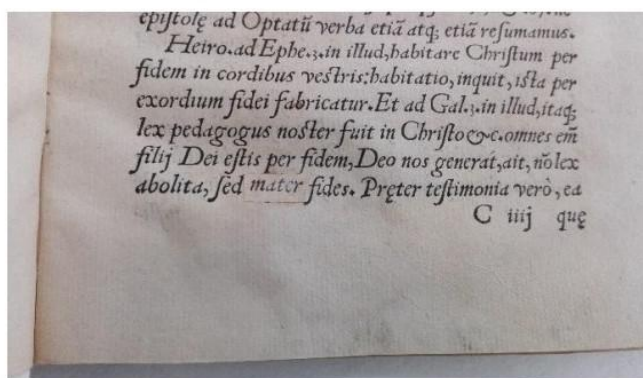 epistolę ad Optatū verba etiā atq; etiā resumamus.
Heiro. ad Ephe. 3. in illud, habitare Christum per
fidem in cordibus vestris: habitatio, inquit, ista per
exordium fidei fabricatur. Et ad Gal. 3. in illud, itaq;
lex pedagogus noster fuit in Christo &c. omnes em̄
filij Dei estis per fidem, Deo nos generat, ait, nō lex
abolita, sed mater fides. Pręter testimonia verò, ea
C iiij quę